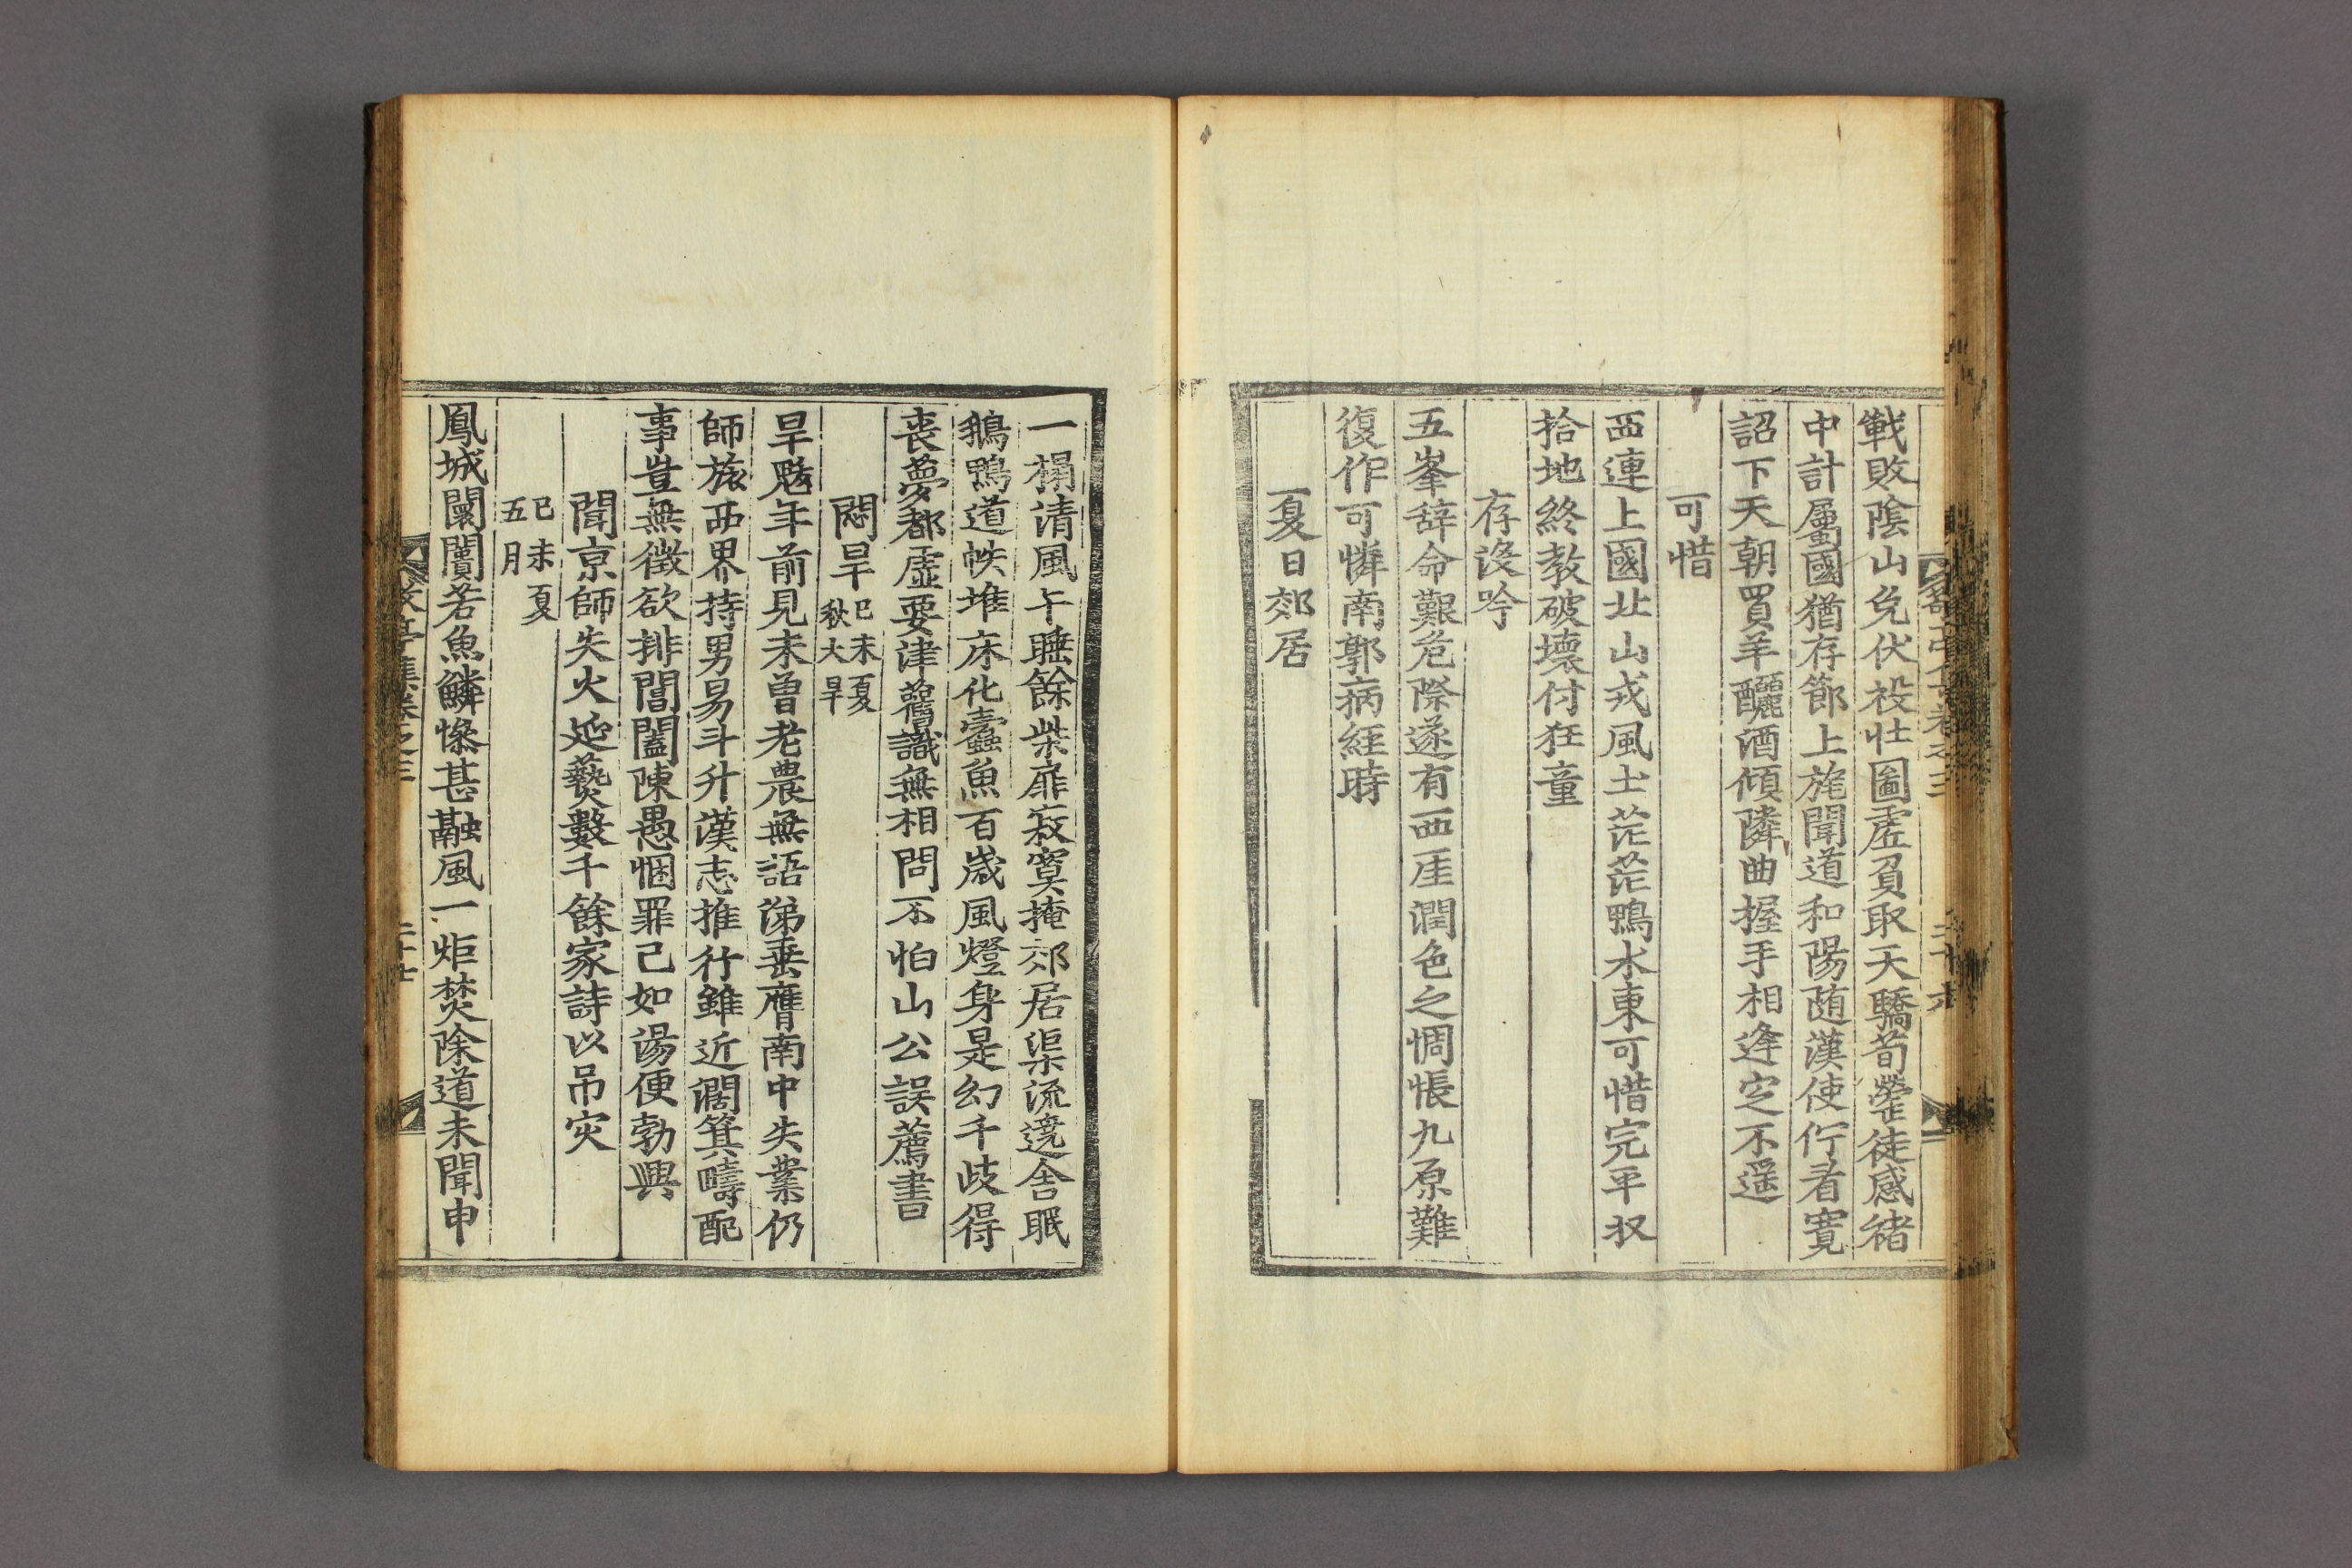 戰敗陰山免伏祋壯圖虛負取天驕荀罃徒感褚
中計屬國猶存節上旄聞道和陽随漢使佇看寛
詔下天朝買羊釃酒傾隣曲握手相逢定不遥
可惜
西連上國北山戎風土茫茫鴨水東可惜完平収
拾地終教破壊付狂童
存没吟
五峯辞命艱危際遂有西厓潤色之惆悵九原難
復作可憐南郭病経時
夏日郊居
一榻清風午睡餘柴扉寂寞掩郊居渠流遶舎眠
鵝鴨道帙堆床化蠹魚百歳風燈身是幻千歧得
喪夢都虛要津舊識無相問不怕山公誤薦書
悶旱己未夏秋大旱
旱魃年前見未曽老農無語涕垂膺南中失業仍
師旅西界持男易斗升漢志推行雖近濶箕疇配
事豈無徴欲排閶闔陳愚悃罪己如湯便勃興
聞京師失火延爇數千餘家詩以吊灾
己未夏五月
鳳城闤闠若魚鱗惨甚融風一炬焚除道未聞申